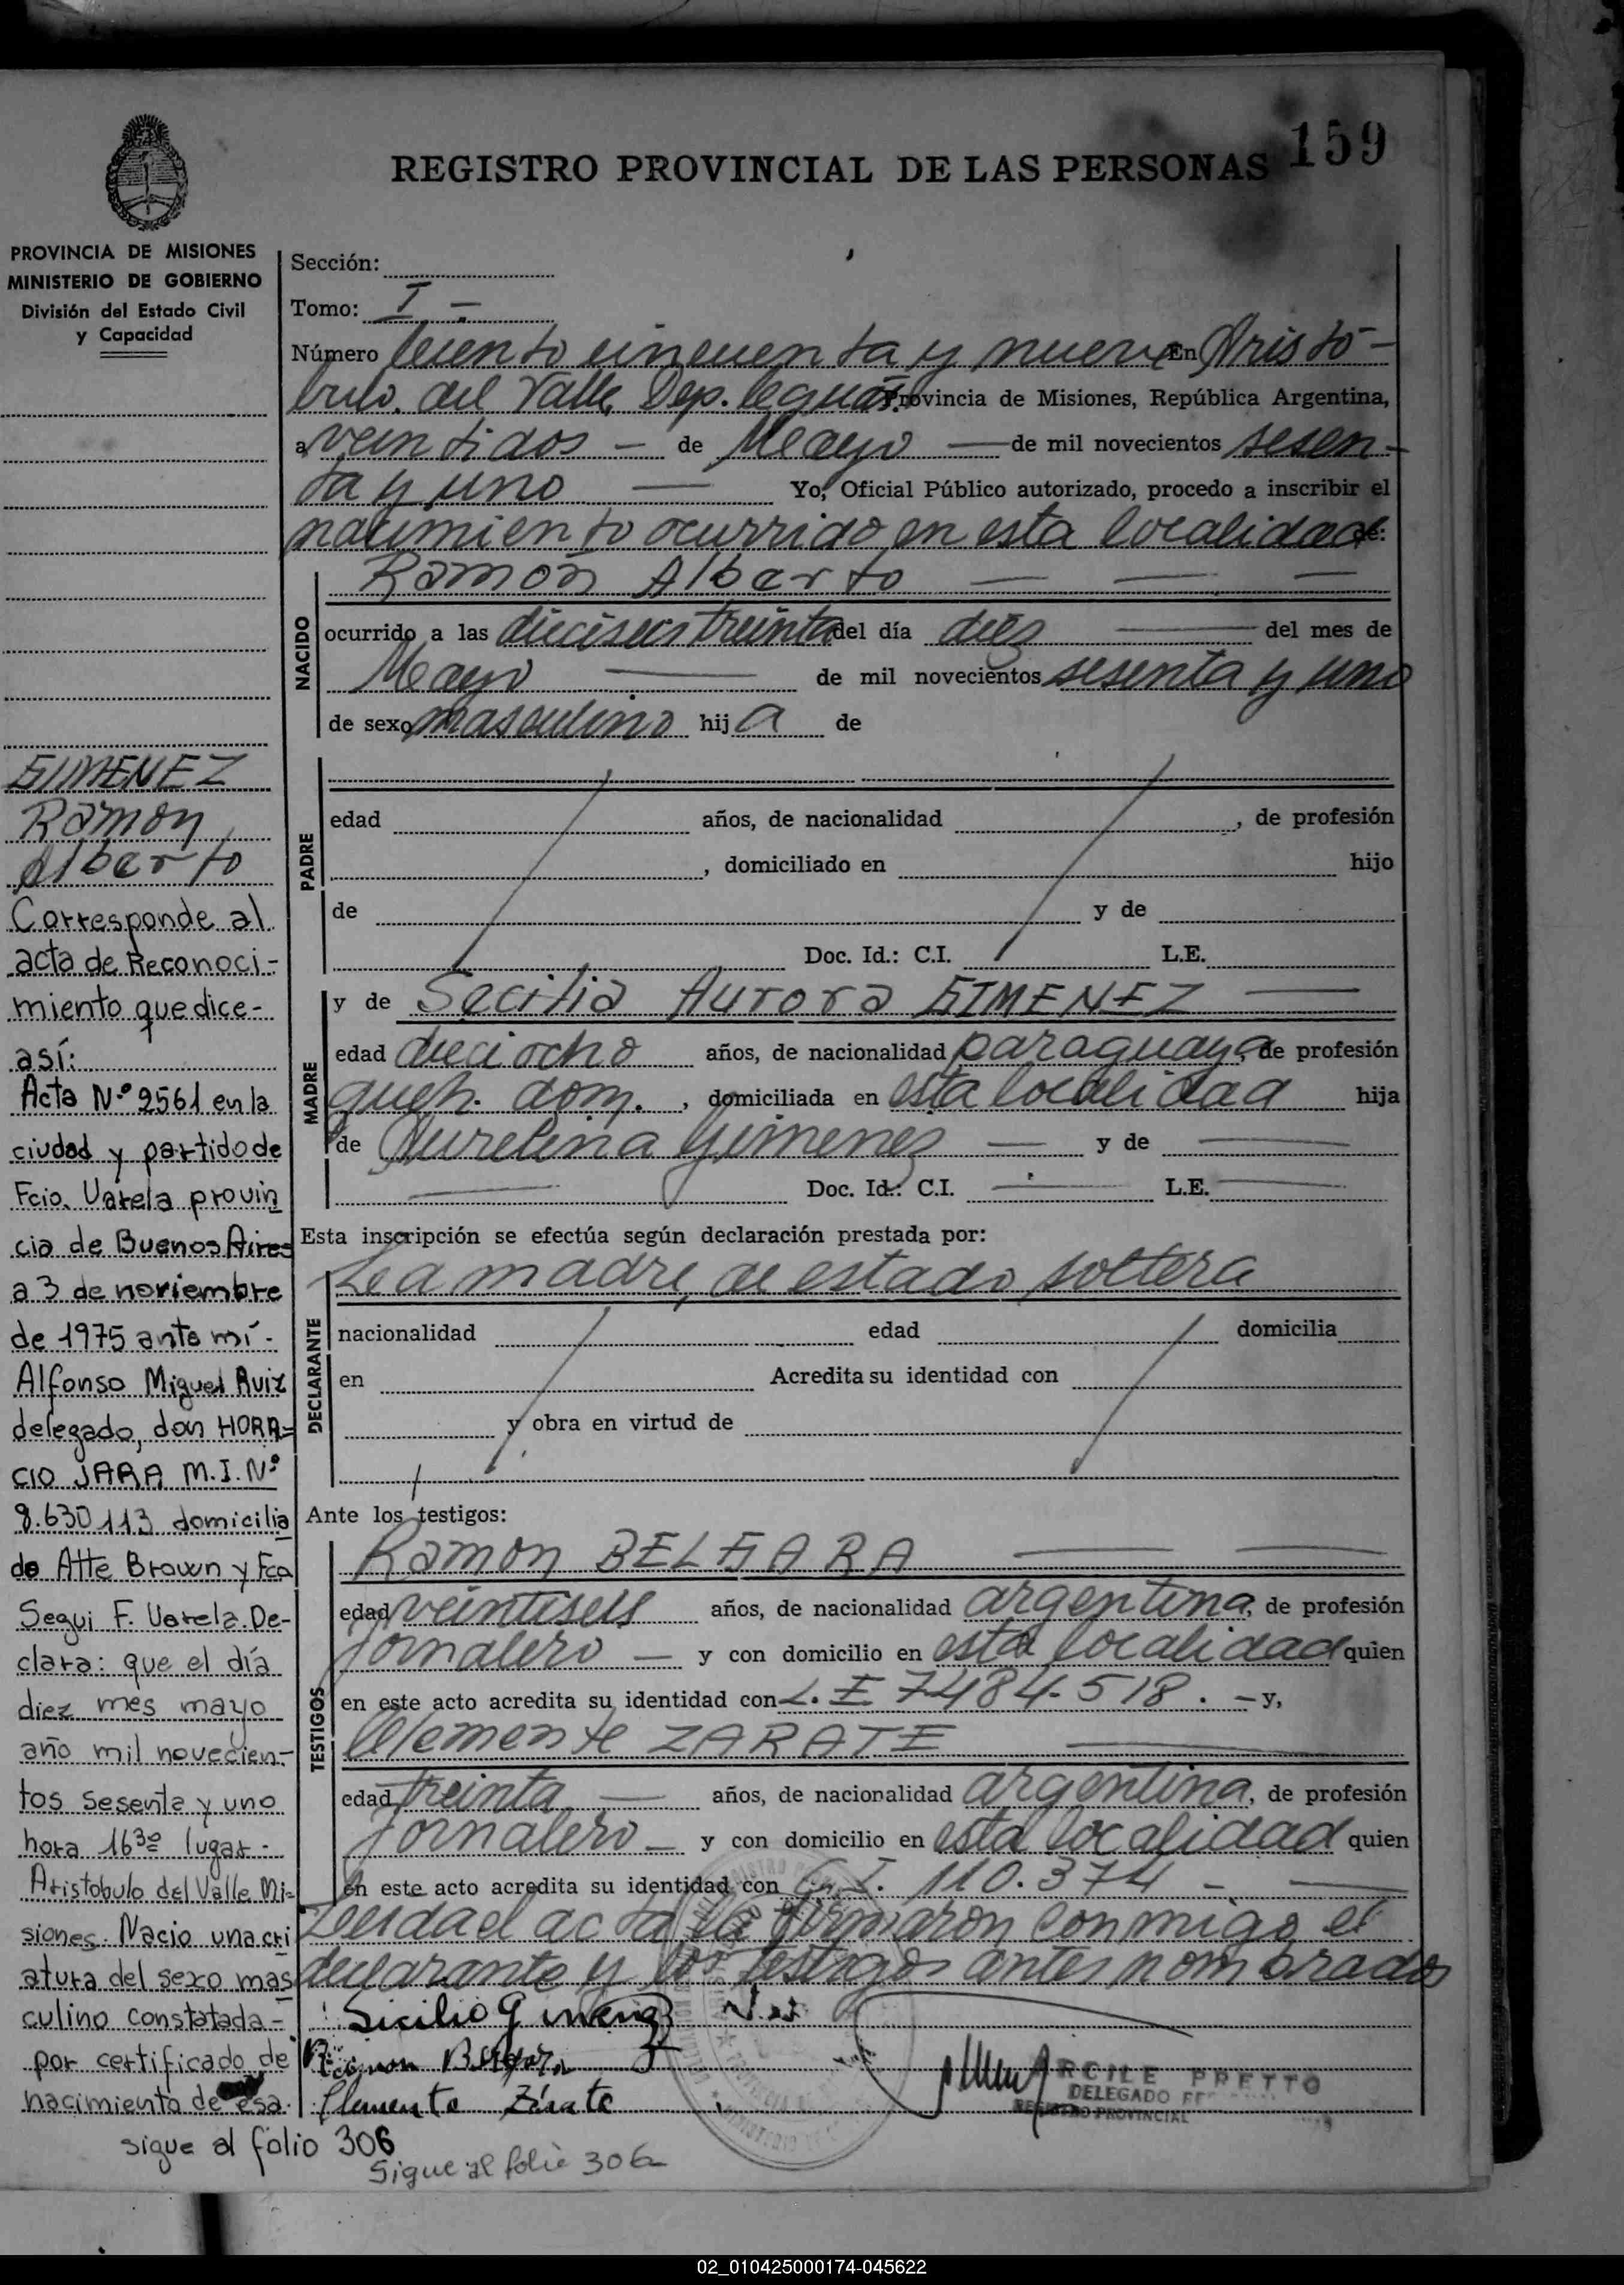 159
REGISTRO PROVINCIAL DE LAS PERSONAS
PROVINCIA DE MISIONES
MINISTERIO DE GOBIERNO
División del Estado Civil
y Capacidad
GIMENEZ
Ramon
Alberto
Corresponde al
acta de Reconoci-
miento que dice-
así:
Acta Nº 2561 en la
ciudad y partido de
Fcio. Varela provin
cia de Buenos Aires
a 3 de noviembre
de 1975 ante mí-
Alfonso Miguel Ruiz
delegado, don HORA=
CIO JARA M.I. Nº
8.630113 domicilia
do Atte Brown y Fco
Segui F. Varela. De-
clara: que el día
diez mes mayo
año mil novecien-
tos sesenta y uno
hora 16³⁰ lugar-
Aristobulo del Valle Mi=
siones. Nacio una cri
atura del sexo mas
culino constatada-
por certificado de
nacimiento de esa.
sigue al folio 306
Sección:
Tomo: I -
Número Ciento cincuenta y nueve En Aristó-
bulo del Valle Dep. Provincia de Misiones, República Argentina,
a veintidos - de Mayo - de mil novecientos sesen-
ta y uno - Yo, Oficial Público autorizado, procedo a inscribir el
nacimiento ocurrido en esta localidad de:
NACIDO
Ramón Alberto
ocurrido a las dieciseis treinta del día diez del mes de
Mayo de mil novecientos sesenta y uno
de sexo masculino hija de
PADRE
edad años, de nacionalidad , de profesión
, domiciliado en hijo
de y de
Doc. Id.: C.I. L.E.
MADRE
y de Secilia Aurora GIMENEZ
edad dieciocho años, de nacionalidad paraguaya, de profesión
queh. dom. , domiciliada en esta localidad hija
de Aurelina Gimenez - y de
Doc. Id.: C.I. L.E.
Esta inscripción se efectúa según declaración prestada por:
DECLARANTE
La madre, de estado soltera
nacionalidad edad domicilia
en Acredita su identidad con
y obra en virtud de
Ante los testigos:
TESTIGOS
Ramon BELGARA
edad veintiseis años, de nacionalidad argentina, de profesión
Jornalero - y con domicilio en esta localidad quien
en este acto acredita su identidad con L.E 7484.518. - y,
Clemente ZARATE
edad treinta - años, de nacionalidad argentina, de profesión
Jornalero - y con domicilio en esta localidad quien
en este acto acredita su identidad con C.I. 110.374 -
Leida el acta la firmaron conmigo el
declarante y los testigos antes nombrados
Ramon
Clemente Zárate
ARCILE PRETTO
DELEGADO
REGISTRO PROVINCIAL
Sigue al folio 306
02_010425000174-045622